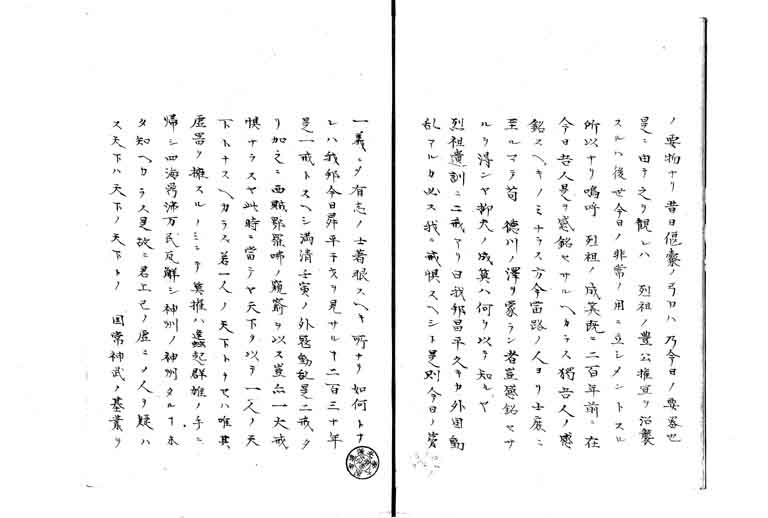 ノ要物ナリ昔日偃橐ノ弓ロハ乃今日ノ要器也
是ニ由テ之ヲ観レハ 烈祖ノ豊公擁立ヲ沿襲
スルハ後世今日ノ非常ノ用ニ立シメントスル
所以ナリ嗚呼 烈祖ノ成算既ニ二百年前ニ在
今日吾人是ヲ感銘セサルヘカラス獨吾人ノ感
銘スヘキノミナラス方今當路ノ人ヨリ士庶ニ
至ルマテ苟 徳川ノ澤ヲ蒙ラン者豈感銘セサ
ルヲ得ンヤ抑夫ノ成算ハ何ヲ以テ知ルヤ
烈祖遺訓ニ二戒アリ曰我邦昌平久キカ外国動
乱アルカ必ス我ニ戒惧スヘシト是則今日ノ當
一義ニシ有志ノ士著眼スヘキ所ナリ如何トナ
レハ我邦今日昇平干戈ヲ見サルヿ二百三十年
是一戒トスヘシ満清壬寅ノ外慝動乱是二戒タ
リ加之ニ西賊鄂羅咈ノ窺窬ヲ以ス豈亦一大戒
惧ナラスヤ此時ニ當テヤ天下ヲ以テ一人ノ天
下トナスヘカラス若一人ノ天下トセハ唯其
虚器ヲ擁スルノミニテ實権ハ逢起群雄ノ手ニ
帰シ四海鼎沸万民瓦解シ神州ノ神州タルヿ未
タ知ヘカラス是故ニ君上己ノ虚ニシ人ヲ疑ハ
ス天下ハ天下ノ天下トシ 国常神武ノ基業ヲ